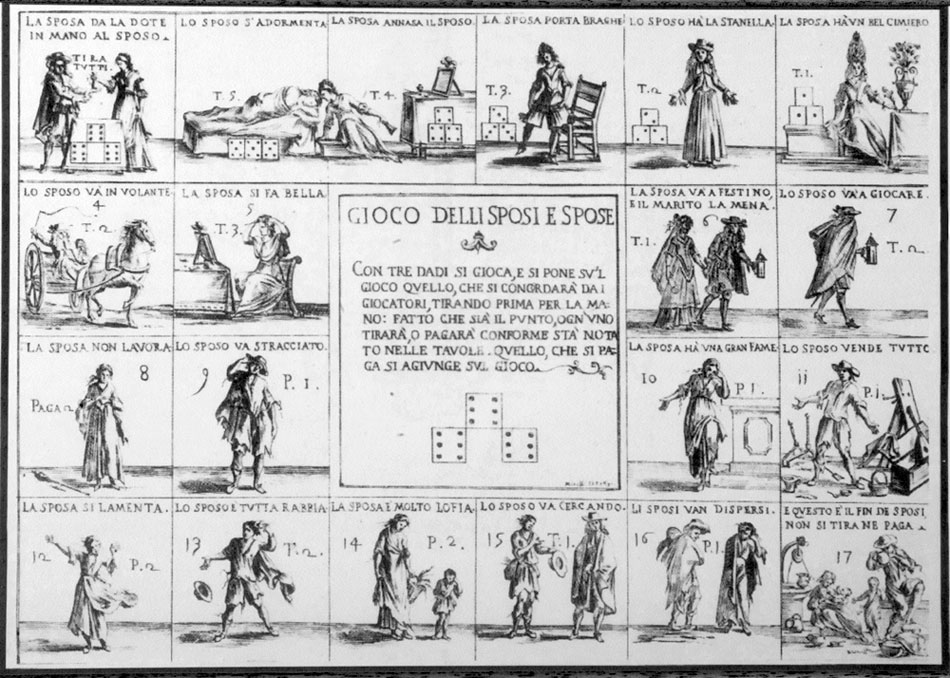 LA SPOSA DA LA DOTE
IN MANO AL SPOSO.
TIRA
TVTTI.
LO SPOSO S'ADORMENTA
T. 5.
LA SPOSA ANNASA IL SPOSO
T. 4.
LA SPOSA PORTA BRAGHE
T. 3.
LO SPOSO HÀ LA STANELLA.
T. 2
LA SPOSA HÀ VN BEL CIMIERO
T. 1.
LO SPOSO VÀ IN VOLANTE
4
T. 2
LA SPOSA SI FA BELLA
5
T. 3.
GIOCO DELLI SPOSI E SPOSE
CON TRE DADI SI GIOCA, E SI PONE SV'L
GIOCO QVELLO, CHE SI CONCORDARÀ DA I
GIOCATORI, TIRANDO PRIMA PER LA MA-
NO: FATTO CHE SIÀ IL PVNTO, OGN'VNO
TIRARÀ, O PAGARÀ CONFORME STÀ NOTA
TO NELLE TAVOLE. QVELLO, CHE SI PA-
GA SI AGIVNGE SVL GIOCO.
LA SPOSA VÀ A FESTINO,
E IL MARITO LA MENA.
6
T. 1.
LO SPOSO VÀ A GIOCARE.
7
T. 2.
LA SPOSA NON LAVORA
8
PAGA 2
LO SPOSO VA STRACCIATO.
9
P. 1.
LA SPOSA HÀ VNA GRAN FAME
10
P. 1.
LO SPOSO VENDE TVTTO
11
P. 1.
LA SPOSA SI LAMENTA.
12
P. 2
LO SPOSO E TVTTA RABBIA
13
T. 2.
LA SPOSA E MOLTO LOFIA.
14
P. 2.
LO SPOSO VA CERCANDO.
15
T. 1.
LI SPOSI VAN DISPERSI.
16
P. 1.
E QVESTO È IL FIN DE SPOSI
NON SI TIRA NE PAGA
17